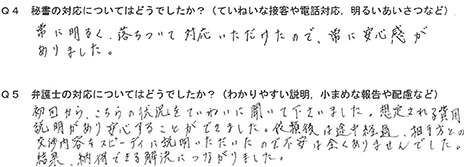 Q4 秘書の対応についてはどうでしたか？（ていねいな接客や電話対応，明るいあいさつなど）
常に明るく、落ちついて対応いただけたので、常に安心感が
ありました。
Q5 弁護士の対応についてはどうでしたか？（わかりやすい説明，小まめな報告や配慮など）
初回から、こちらの状況をていねいに聞いて下さいました。想定される費用
説明があり安心することができました。依頼後は途中経過、相手方との
交渉内容もスピーディに説明いただいたので不安は全くありませんでした。
結果、納得できる解決につながりました。